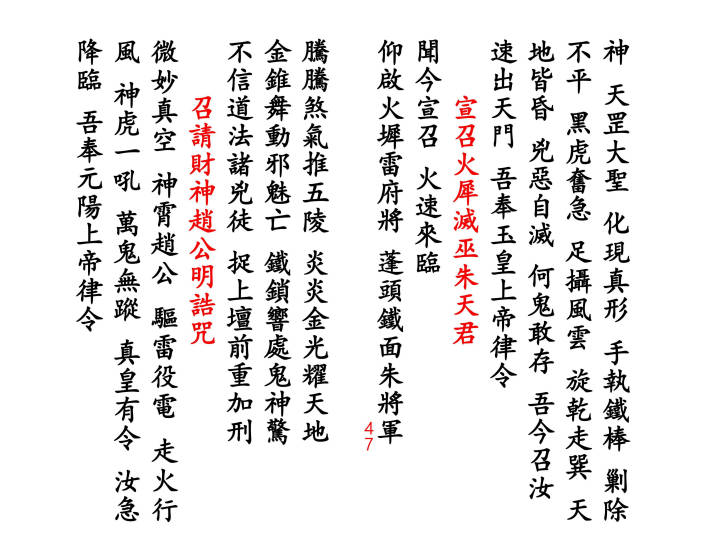 神 天罡大聖 化現真形 手執鐵棒 剿除
不平 黑虎奮急 足攝風雲 旋乾走巽 天
地皆昏 兇惡自滅 何鬼敢存 吾今召汝
速出天門 吾奉玉皇上帝律令
宣召火犀滅巫朱天君
聞今宣召 火速來臨
仰啟火墀雷府將 蓬頭鐵面朱將軍
47
騰騰煞氣推五陵 炎炎金光耀天地
金錐舞動邪魅亡 鐵鎖響處鬼神驚
不信道法諸兇徒 捉上壇前重加刑
召請財神趙公明誥咒
微妙真空 神霄趙公 驅雷役電 走火行
風 神虎一吼 萬鬼無蹤 真皇有令 汝急
降臨 吾奉元陽上帝律令